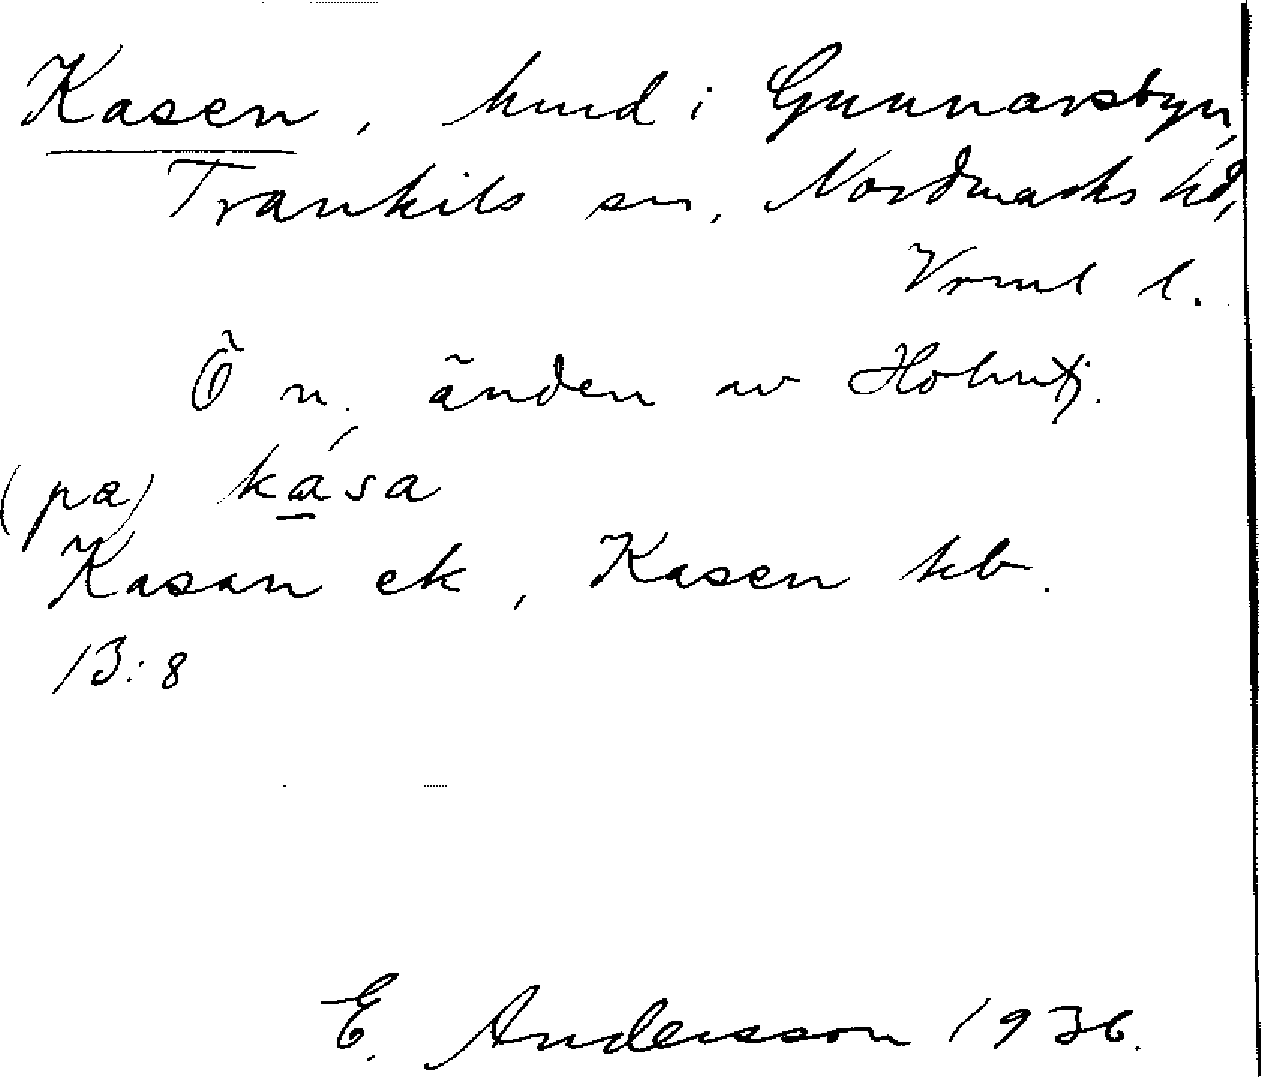 Kasen, hmd i Gunnarsbyn,
Trankils sn, Nordmarks hd,
Vrml l.
Ö n. änden av Holmtj.
(på) ká̱sa
Kasan ek, Kasen kb.
13:8
E. Andersson 1936.